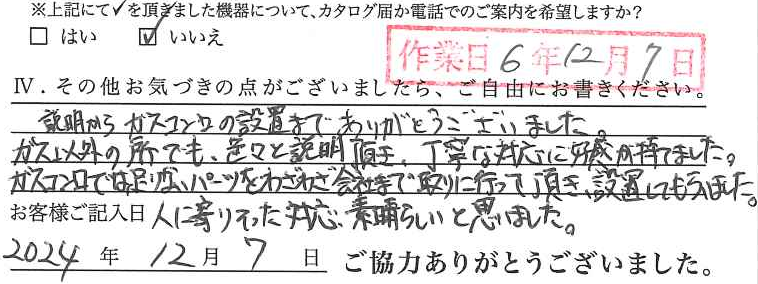 ※上記にて✓を頂きました機器について、カタログ届か電話でのご案内を希望しますか?
□ はい ☑ いいえ
作業日 6年12月7日
Ⅳ．その他お気づきの点がございましたら、ご自由にお書きください。
説明からガスコンロの設置までありがとうございました。
ガス以外の所でも、色々と説明頂き、丁寧な対応に好感が持てました。
ガスコンロでは足りないパーツをわざわざ会社まで取りに行って頂き、設置してもらいました。
お客様ご記入日 人に寄りそった対応、素晴らしいと思いました。
2024 年 12 月 7 日 ご協力ありがとうございました。